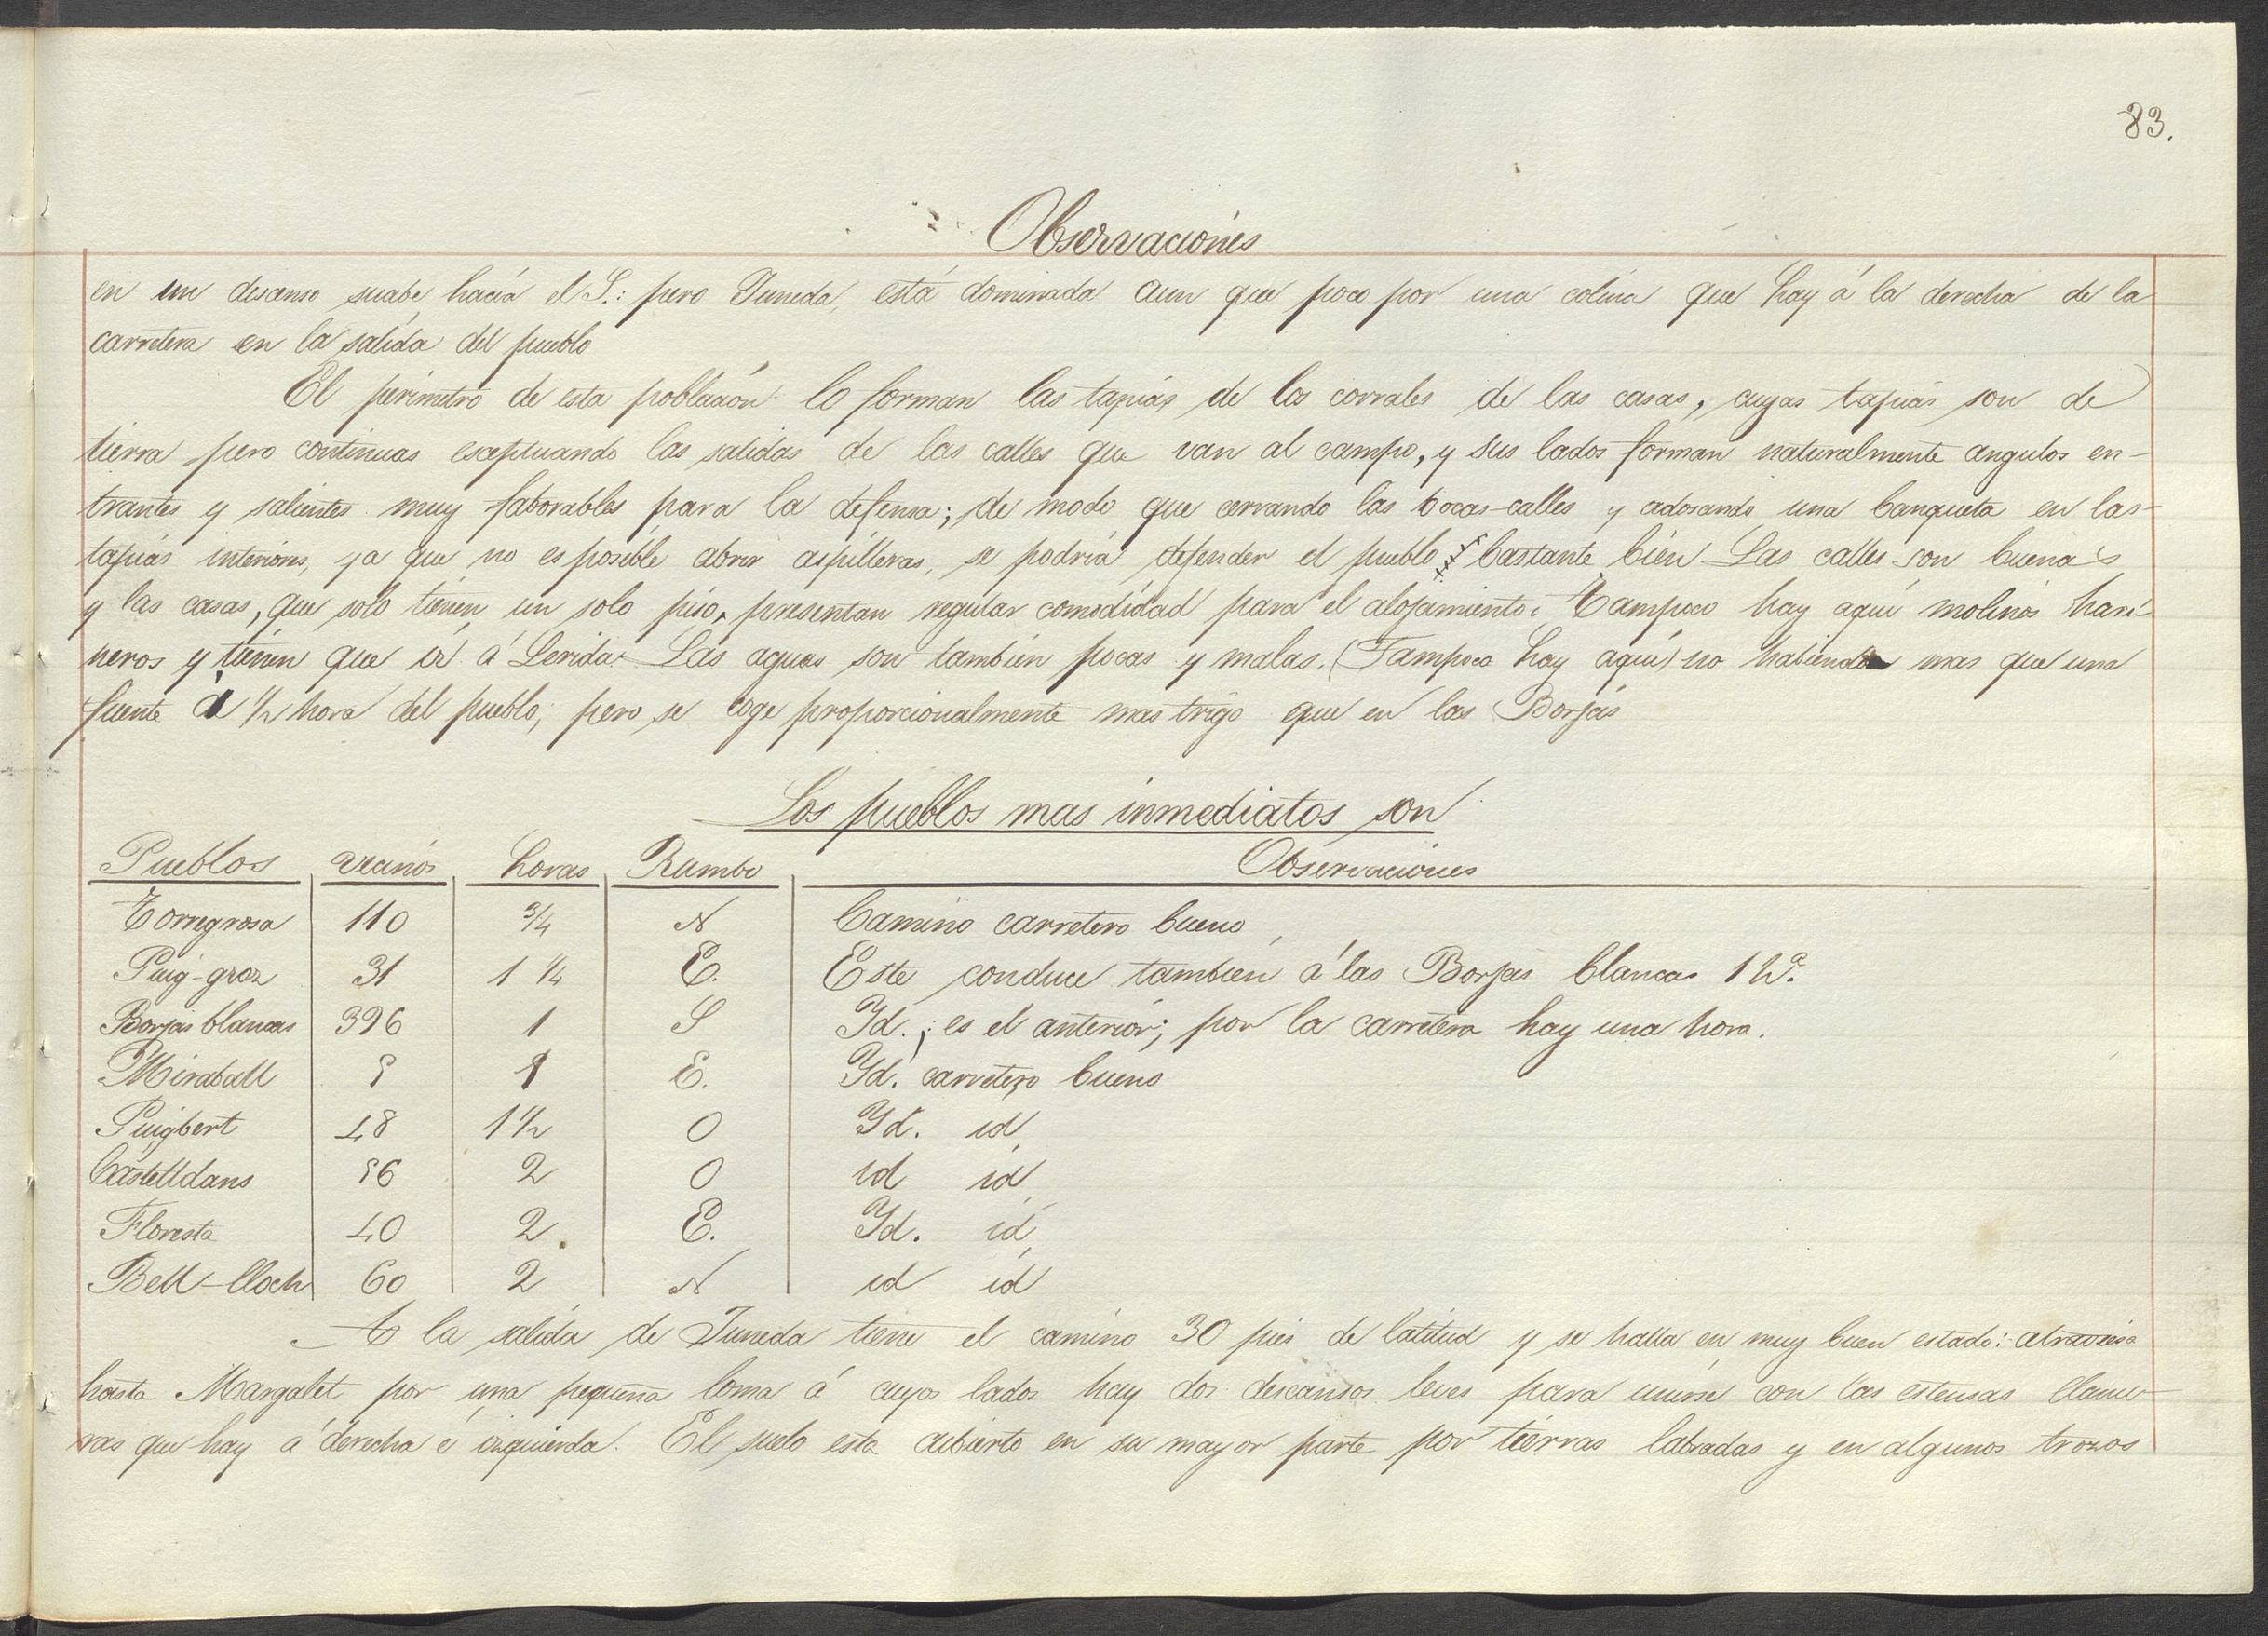 83.
Observaciones
en un descenso suabe hacia el S.: pero Juneda, está dominada aun que poco por una colina que hay á la derecha de la
carretera en la salida del pueblo
El perimetro de esta poblacion lo forman las tapias de los corrales de las casas, cuyas tapias son de
tierra pero continuas esceptuando las salidas de las calles que van al campo, y sus lados forman naturalmente angulos en-
trantes y salientes muy faborables para la defensa; de modo que cerrando las bocas-calles y adosando una banqueta en las
tapias interiores, ya que no es posible abrir aspilleras, se podria defender el pueblo bastante bien Las calles son buenas
y las casas, que solo tienen un solo piso, presentan regular comodidad para el alojamiento. Tampoco hay aquí molinos hari-
neros y tienen que ir á Lerida Las aguas son tambien pocas y malas. (Tampoco hay aquí) no habiendo mas que una
fuente á 1/2 hora del pueblo; pero se coge proporcionalmente mas trigo que en las Borjas
Los pueblos mas inmediatos son
Pueblos vecinos horas Rumbo Observaciones
Torregrosa 110 3/4 N Camino carretero bueno
Puig-gros 31 1 1/4 E. Este conduce tambien á las Borjas blancas 1 hª.
Borjas blancas 396 1 S Yd.; es el anterior; por la carretera hay una hora.
Miraball 9 1 E. Yd. carretero bueno
Puigbert 48 1 1/2 O Yd. id
Castelldans 96 2 O id id
Floresta 40 2 E. Yd. id
Bell-lloch 60 2 N id id
A la salida de Juneda tiene el camino 30 pies de latitud y se halla en muy buen estado: atraviesa
hasta Margalet por una pequeña loma á cuyos lados hay dos descansos leves para unirse con las estensas llanu-
ras que hay á derecha é izquierda. El suelo esta cubierto en su mayor parte por tierras labradas y en algunos trozos